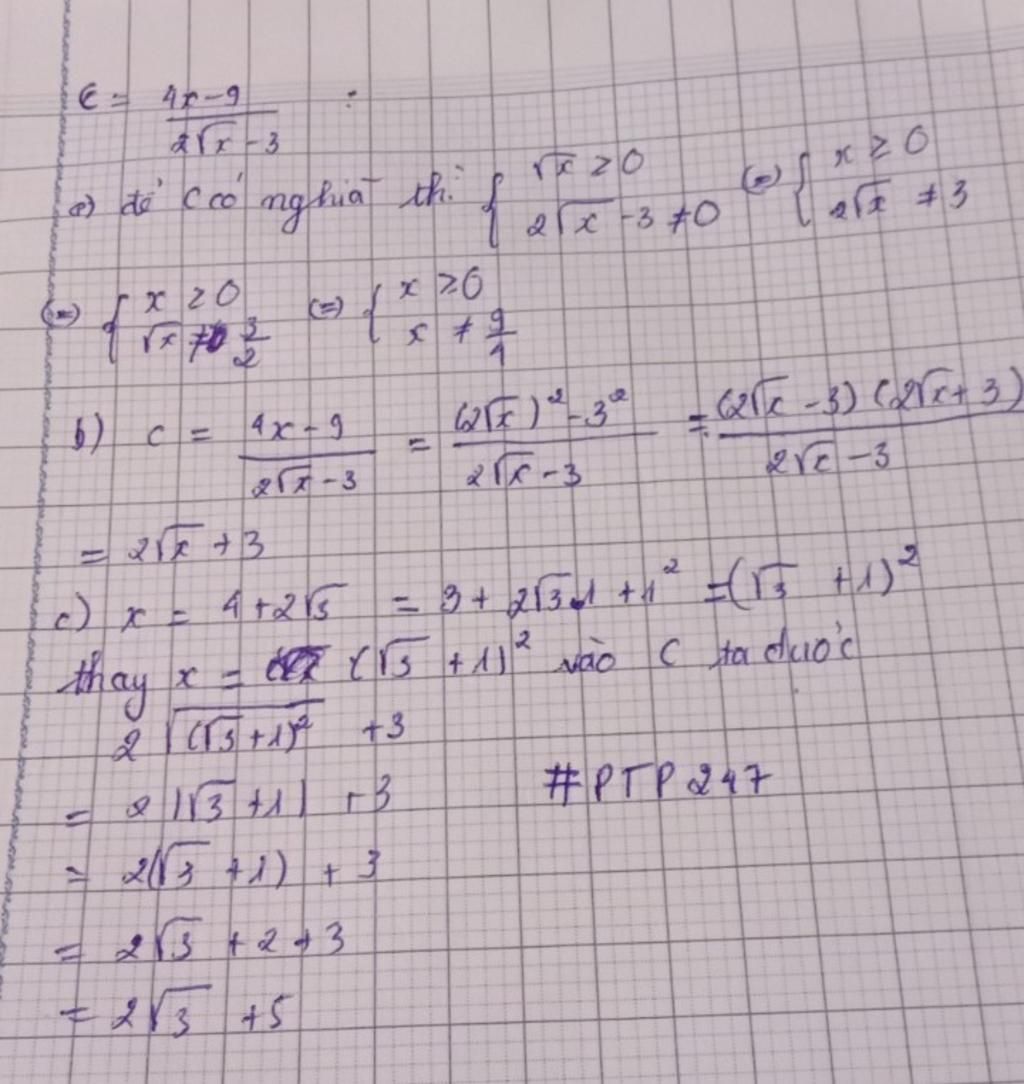 C = \frac{4x-9}{2\sqrt{x}-3} :
a) để C có nghĩa thì { \sqrt{x} ≥ 0 ; 2\sqrt{x} - 3 ≠ 0 (=) { x ≥ 0 ; 2\sqrt{x} ≠ 3
(=) { x ≥ 0 ; \sqrt{x} ≠ \frac{3}{2} (=) { x ≥ 0 ; x ≠ \frac{9}{4}
b) C = \frac{4x-9}{2\sqrt{x}-3} = \frac{(2\sqrt{x})^2 - 3^2}{2\sqrt{x}-3} = \frac{(2\sqrt{x}-3)(2\sqrt{x}+3)}{2\sqrt{x}-3}
= 2\sqrt{x} + 3
c) x = 4 + 2\sqrt{3} = 3 + 2\sqrt{3}.1 + 1^2 = (\sqrt{3} + 1)^2
thay x = (\sqrt{3} + 1)^2 vào C ta được
2\sqrt{(\sqrt{3}+1)^2} + 3
= 2|\sqrt{3} + 1| + 3
= 2(\sqrt{3} + 1) + 3
= 2\sqrt{3} + 2 + 3
= 2\sqrt{3} + 5
#PTP247